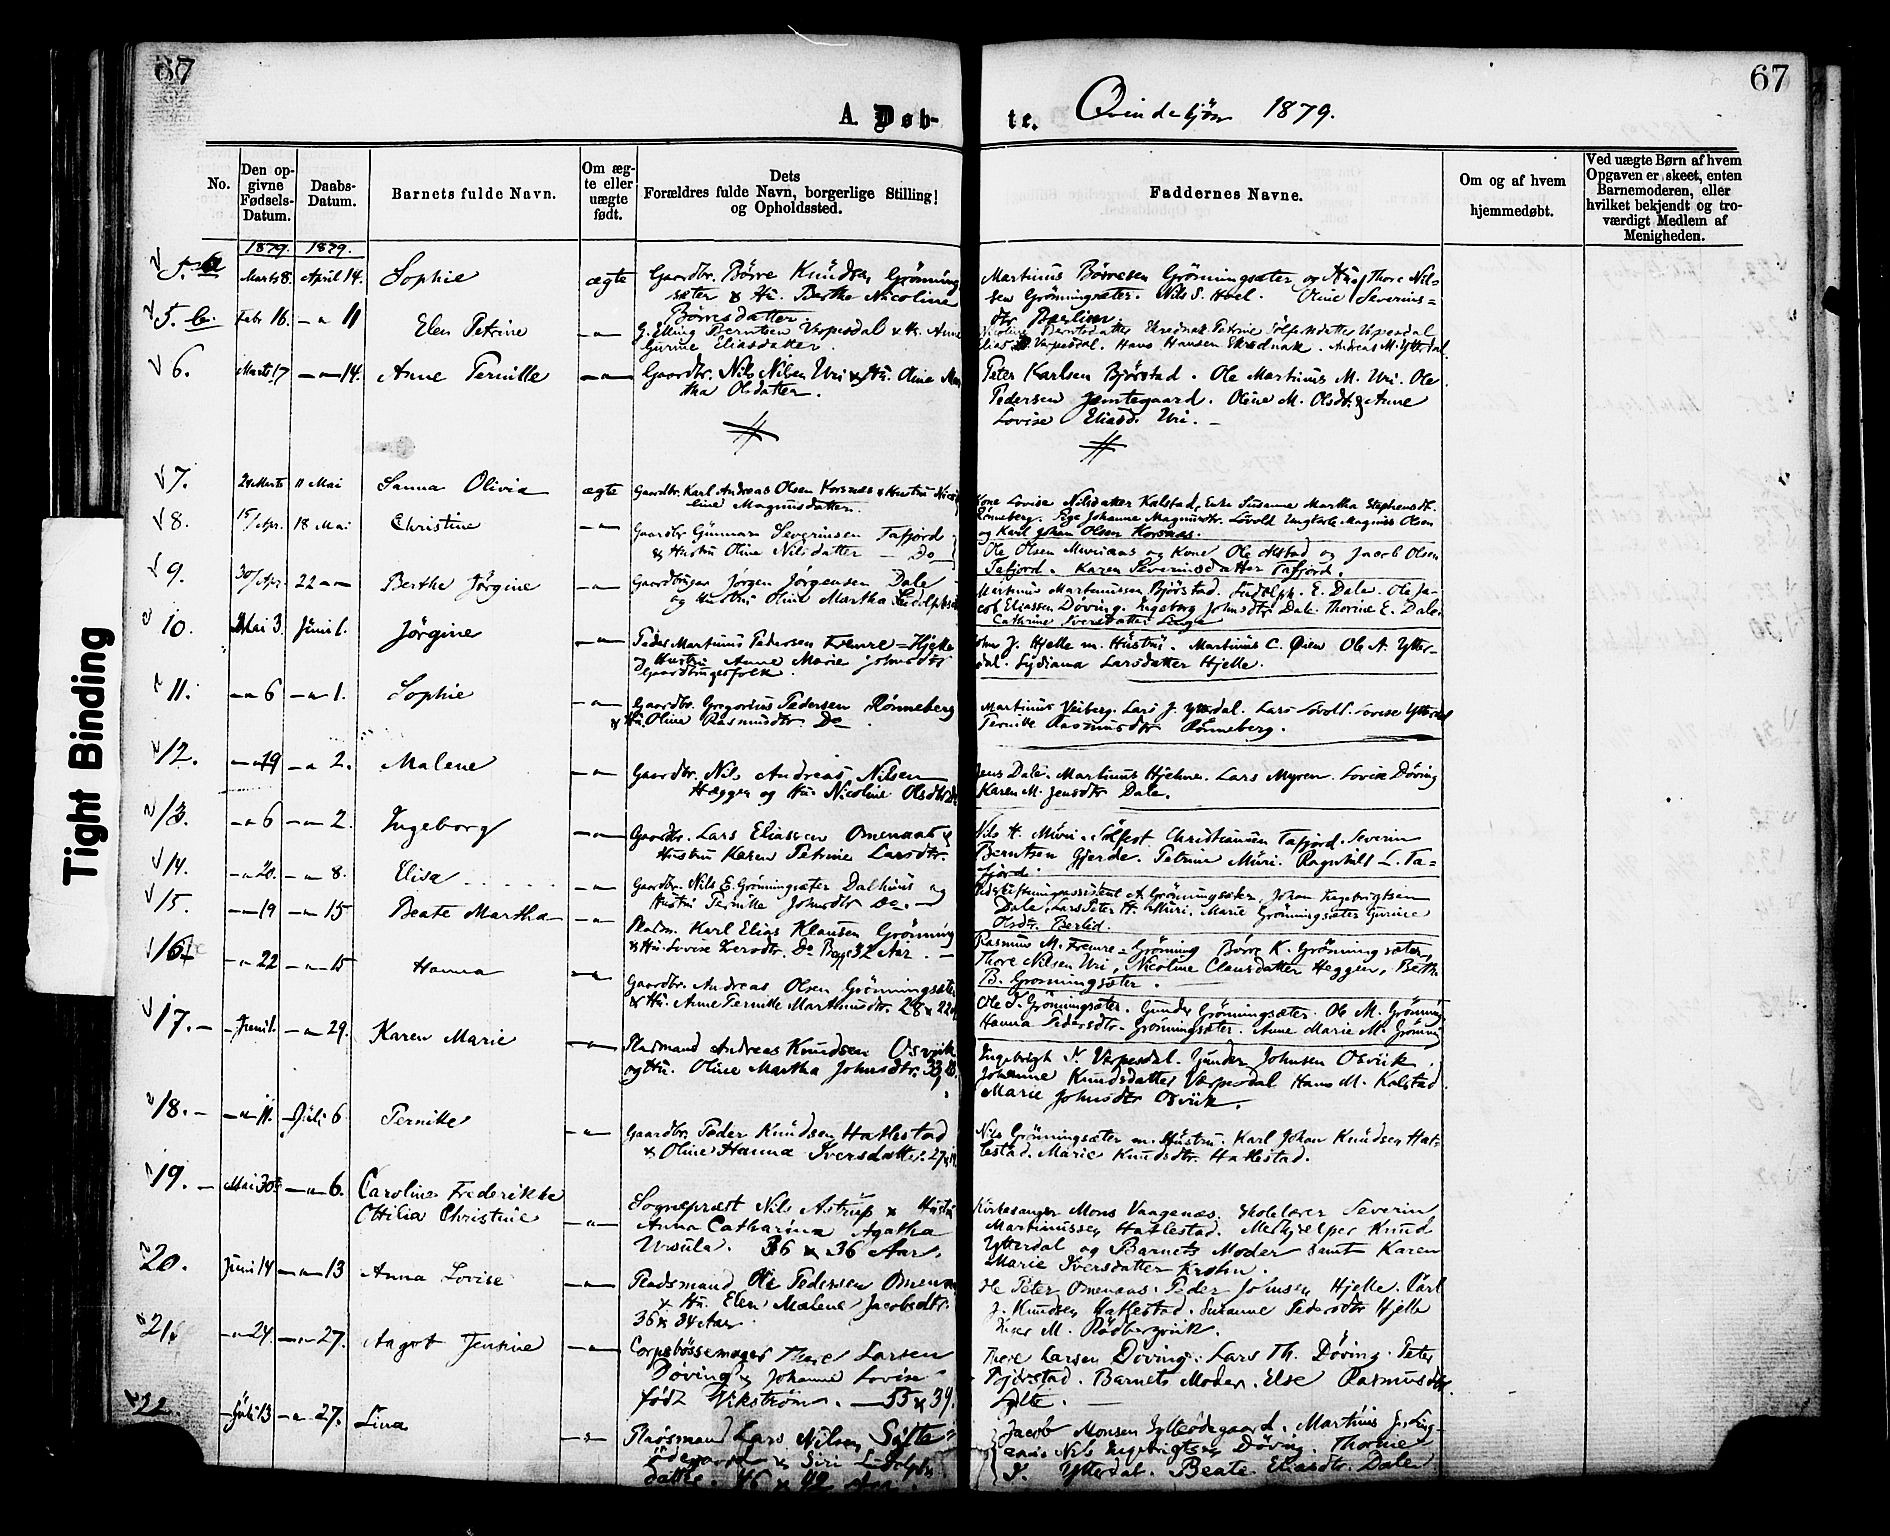 67
67
A. Døb-
te.
Qvindekjøn 1879.
No.
Den opgivne Fødsels-Datum.
Daabs-Datum.
Barnets fulde Navn.
Om ægte eller uægte født.
Dets Forældres fulde Navn, borgerlige Stilling og Opholdssted.
Faddernes Navne.
Om og af hvem hjemmedøbt.
Ved uægte Børn af hvem Opgaven er skeet, enten Barnemoderen, eller hvilket bekjendt og troværdigt Medlem af Menigheden.
1879. 1879.
5. a Marts 8 April 14. Sophie ægte Gaardbr. Børre Knudsen Grønning
sæter & Hu. Berthe Nicoline
Børresdatter.
Martinus Børresen Grønningsæter og Hu. Thore Nil-
sen Grønningsæter. Nils S. Hoel. Oline Severins-
dtr Berlien.
5. b. Febr 16. -"- 11 Elen Petrine -"- G. Elling Berntsen Verpesdal & H. Anne
Gurine Eliasdatter.
Nicoline Berntsdatter Skrednak. Petrine Sølfestsdatter Verpesdal
Elias Verpesdal. Hans Hansen Skrednak. Andreas M. Ytterdal
6. Marts 17 -"- 14. Anne Pernille -"- Gaardbr. Nils Nilsen Uri & Hu. Oline Mar
tha Olsdatter.
Peter Karlsen Bjørstad. Ole Martinus M. Uri. Ole
Pedersen Jemtegaard. Oline M. Olsdtr. & Anne
Lovise Eliasd. Uri.
7. 24 Marts 11 Mai Sanna Olivia ægte Gaardbr. Karl Andreas Olsen Korsnæs & Hustru Nico
line Magnusdatter.
Kone Lovise Nilsdatter Kalstad, Enke Susanne Martha Stephensdt.
Rønneberg. Pige Johanne Magnusdtr. Løvold Ungkarle Magnus Olsen
og Karl Johan Olsen Korsnæs.
8. 15/Apr. 18 Mai Christine -"- Gaardbr Gunnar Severinsen Tafjord
& Hustru Oline Nilsdatter - Do
Ole Olsen Muriaas og Kone Ole Alstad og Jacob Olsen
Tafjord. Karen Severinsdatter Tafjord.
9. 30/Apr. 22 -"- Berthe Jørgine -"- Gaardbruger Jørgen Jørgensen Dale
og Hustru Oline Martha Ludolphsd
Martinus Martinussen Bjørstad. Ludolph. E. Dale. Ole Ja-
cob Eliassen Døving. Ingeborg Johnsdtr Dale. Thorine E. Dale.
Cathrine Iversdatter Linge
10. Mai 3. Juni 1. Jørgine -"- Peder Martinus Pedersen Fremre-Hjelle
og Hustru Anne Marie Johnsdtr
Gaardbrugesfolk.
John J. Hjelle m. Hustru. Martinus C. Øien Ole A. Ytter-
dal. Lydiana Larsdatter Hjelle.
11. -"- 6 -"- 1. Sophie -"- Gaardbr. Gregorius Pedersen Rønneberg
& Hu. Oline Rasmusdtr Do.
Martinus Veiberg. Lars J. Ytterdal. Lars Løvoll. Lovise Ytterdal
Pernille Rasmusdtr Rønneberg.
12. -"- 19 -"- 2. Malene -"- Gaardbr. Nils Andreas Nilsen
Heggen og Hu. Nicoline Olsdtr Do
Jens Dale. Martinus Hjelme. Lars Myren. Lovise Døving
Karen M. Jensdtr Dale.
13. -"- 6 -"- 2. Ingeborg -"- Gaardbr. Lars Eliassen Omenaas &
Hustru Karen Petrine Larsdtr.
Nils H. Muri. Sølfest Christiansen Tafjord. Severin
Berntsen Gjerde. Petrine Muri. Ragnhild L. Ta-
fjord.
14. -"- 20. -"- 8. Elisa -"- Gaardbr. Nils E. Grønningsæter Dalhuus og
Hustru Pernille Johnsdtr Do.
Udskiftningsassistent A. Grønningsæter, Johan Ingebrigtsen
Dale, Lars Peter H. Muri. Marie Grønningsæter Gurine
Olsdtr. Berlid.
15. -"- 19 -"- 15 Beate Martha -"- Pladsm. Karl Elias Klausen Grønning
& Hu. Lovise Do Begge 32 Aar.
Rasmus M. Fremre-Grøning Børre K. Grønningsæter,
Thore Nilsen Uri, Nicoline Clausdatter Heggen, Berthe
B. Grønningsæter.
16. -"- 22 -"- 15 Hanna -"- Gaardbr. Andreas Olsen Grønningsæter
& Hu. Anne Pernille Martinusdtr. 28 & 22
Ole P. Grønningsæter. Gunder Grønningsæter. Ole M. Grønning
Hanna Pedersdtr. Grønningsæter. Anne Marie M. Grønning
17. - Juni 1. -"- 29. Karen Marie -"- Pladsmand Andreas Knudsen Osvik
og Hu. Oline Martha Johnsdtr.
Ingebrigt K. Verpesdal. Gunder Johnsen Osvik.
Johanne Knudsdatter Verpesdal Hans M. Kalstad.
Marie Johnsdtr Osvik.
18. - -"- 11. Juli 6 Pernille -"- Gaardbr. Peder Knudsen Hatlestad
& Oline Hanna Iversdatter.
Nils Grønningsæter m. Hustru. Karl Johan Knudsen Hat-
lestad. Marie Knudsdtr. Hatlestad.
19. - Mai 30 -"- 6. Caroline Frederikke
Ottilia Christine -"- Sognepræst Nils Astrup & Hustru
Anna Catharina Agatha
Ursula. 36 & 36 Aar.
Kirkesanger Mons Vaagenæs. Skolelærer Severin
Martinussen Hatlestad. Medhjælper Knud
Ytterdal og Barnets Moder samt Karen
Marie Iversdatter Krohn.
20. Juni 14 -"- 13 Anna Lovise -"- Pladsmand Ole Pedersen Omenaas
& Hu. Elen Malene Jacobsdtr.
36 & 34 Aar
Ole Peter Omenaas. Peder Johnsen Hjelle. Karl
J. Knudsen Hatlestad. Susanne Pedersdtr Hjelle
M. Rødbergvik.
21. -"- 24. -"- 27. Aagot Jensine -"- Corpsbøssemager Thore Larsen
Døving & Johanne Lovise
født Vikstrøm. - 55 & 39.
Thore Larsen Døving. Lars Th. Døving. Peter
Bjørstad. Barnets Moder. Else Rasmusdtr
Sylte.
22. - Juli 13 -"- 27. Lina -"- Pladsmand Lars Nilsen Sylte-
ødegaard & Siri Ludolphs
datter. 46 & 42 Aar.
Jacob Monsen Sylteødegaard. Martinus J. Ling-
Nils Ingebrigtsen Døving. Thorine
J. Ytterdal. Beate Eliasdtr. Dale
Tight Binding